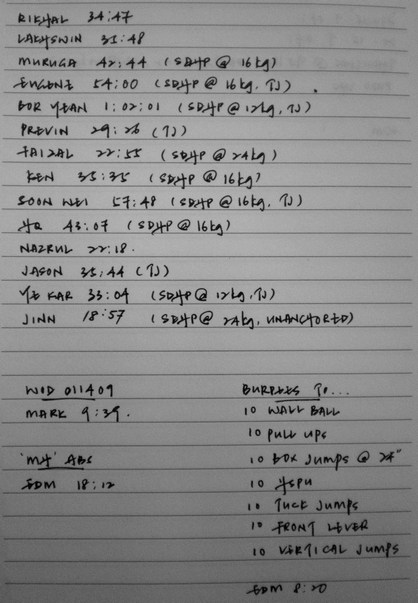 RIZHAL 34:47
LAKHSWIN 35:48
MURUGA 42:44 (SDHP @ 16kg)
EUGENE 54:00 (SDHP @ 16kg, TJ)
BOR YEAN 1:02:01 (SDHP @ 12kg, TJ)
PREVIN 29:26 (TJ)
FAIZAL 22:55 (SDHP @ 24kg)
KEN 35:35 (SDHP @ 16kg)
SOON WEI 57:48 (SDHP @ 16kg, TJ)
43:07 (SDHP @ 16kg)
NAZRUL 22:18.
JASON 35:44 (TJ)
YE KAR 33:04 (SDHP @ 12kg, TJ)
JINN 18:57 (SDHP @ 24kg, UNANCHORED)
WOD 011409
MARK 9:39.
'MH' ABS
EDM 18:12
BURPEES TO...
10 WALL BALL
10 PULL UPS
10 BOX JUMPS @ 24"
10 HSPU
10 TUCK JUMPS
10 FRONT LEVER
10 VERTICAL JUMPS
EDM 8:20